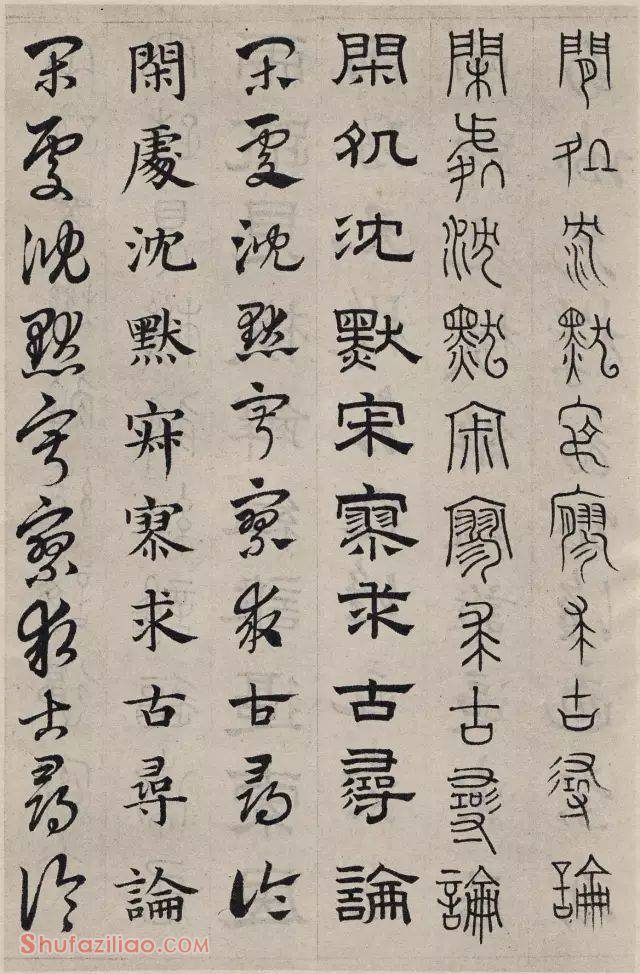 閒処沈默寂寥求古尋論
閑處沈默寂寥求古尋論
閑処沈默寂寥求古尋論
閑處沈默寂寥求古尋論
閑處沈默寂寥求古尋論
閑處沈默寂寥求古尋論
Shufaziliao.COM